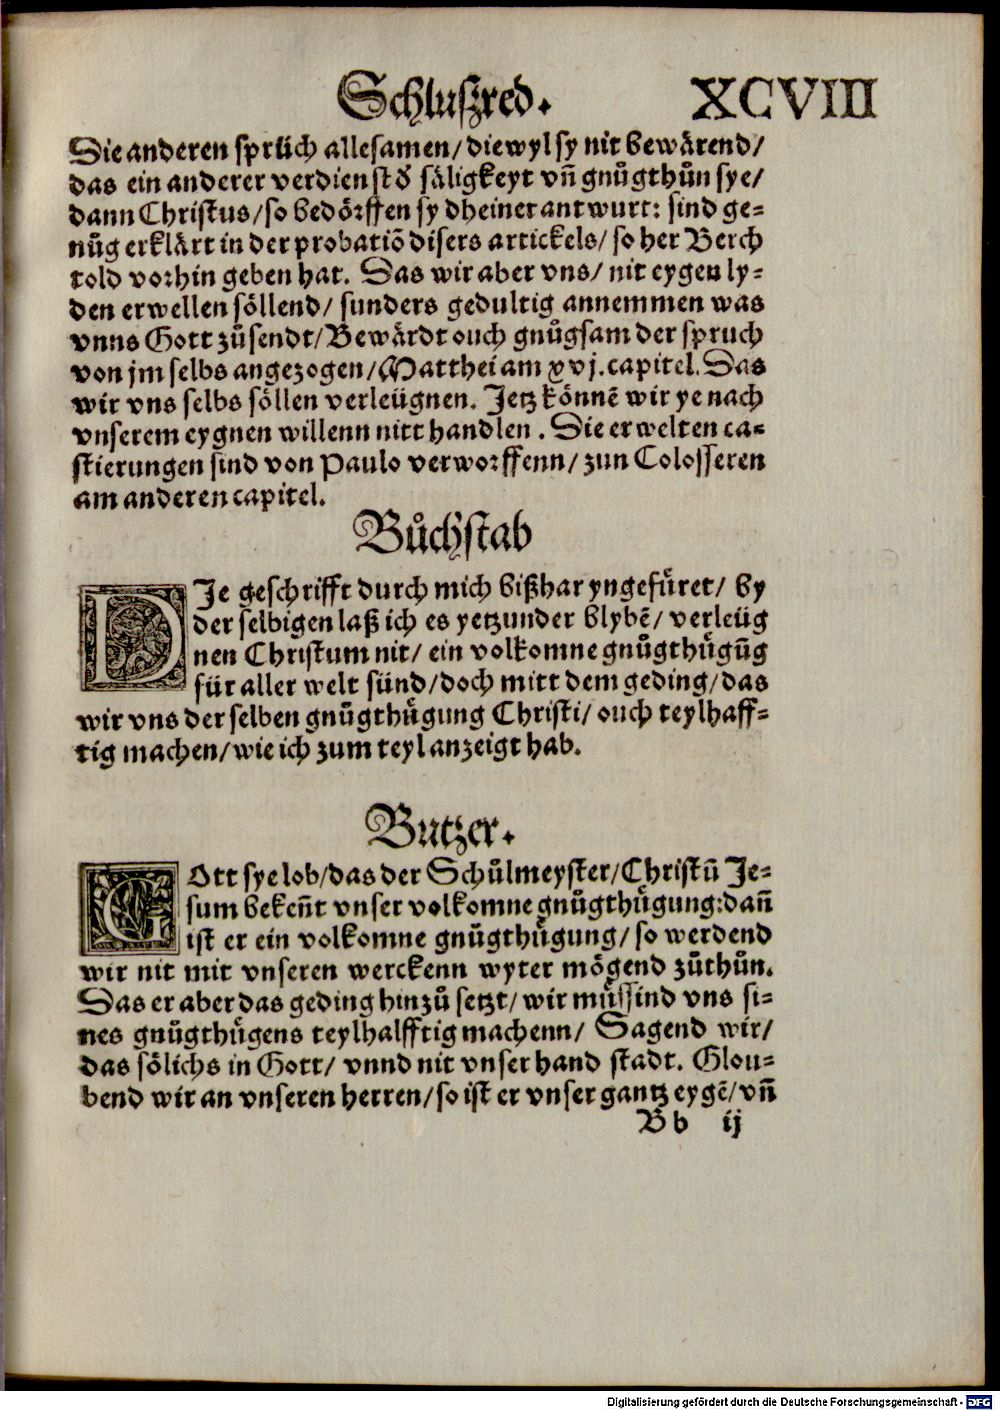 Schluſzred. XCVIII
Die anderen ſprüch alleſamen/ diewyl ſy nit bewärend/
das ein anderer verdienſt d̕ ſäligkeyt vñ gnůgthůn ſye/
dann Chriſtus/ ſo bedörffen ſy dheiner antwurt: ſind ge⸗
nůg erklärt in der probatiõ diſers artickels/ ſo her Berch
told vorhin geben hat. Das wir aber vns/ nit eygen ly⸗
den erwellen ſöllend/ ſunders gedultig annemmen was
vnns Gott zůſendt/ Bewärdt ouch gnůgſam der ſpruch
von jm ſelbs angezogen/ Matthei am xvj. capitel. Das
wir vns ſelbs ſöllen verleügnen. Jetz könnẽ wir ye nach
vnſerem eygnen willenn nitt handlen. Die erwelten ca⸗
ſtierungen ſind von Paulo verworffenn/ zun Coloſſeren
am anderen capitel.
Bůchſtab
DJe geſchrifft durch mich bißhar yngefüret/ by
der ſelbigen laß ich es yetzunder blybẽ/ verleüg
nen Chriſtum nit/ ein volkomne gnůgthůgũg
für aller welt ſünd/ doch mitt dem geding/ das
wir vns der ſelben gnůgthůgung Chriſti/ ouch teylhaff⸗
tig machen/ wie ich zum teyl anzeigt hab.
Butzer.
GOtt ſye lob/ das der Schůlmeyſter/ Chriſtũ Je⸗
ſum bekeñt vnſer volkomne gnůgthůgung: dañ
iſt er ein volkomne gnůgthůgung/ ſo werdend
wir nit mit vnſeren werckenn wyter mögend zůthůn.
Das er aber das geding hinzů ſetzt/ wir müſſind vns ſi⸗
nes gnůgthůgens teylhalfftig machenn/ Sagend wir/
das ſölichs in Gott/ vnnd nit vnſer hand ſtadt. Glou⸗
bend wir an vnſeren herren/ ſo iſt er vnſer gantz eygẽ/ vñ
Bb ij
Digitalisierung gefördert durch die Deutsche Forschungsgemeinschaft - DFG